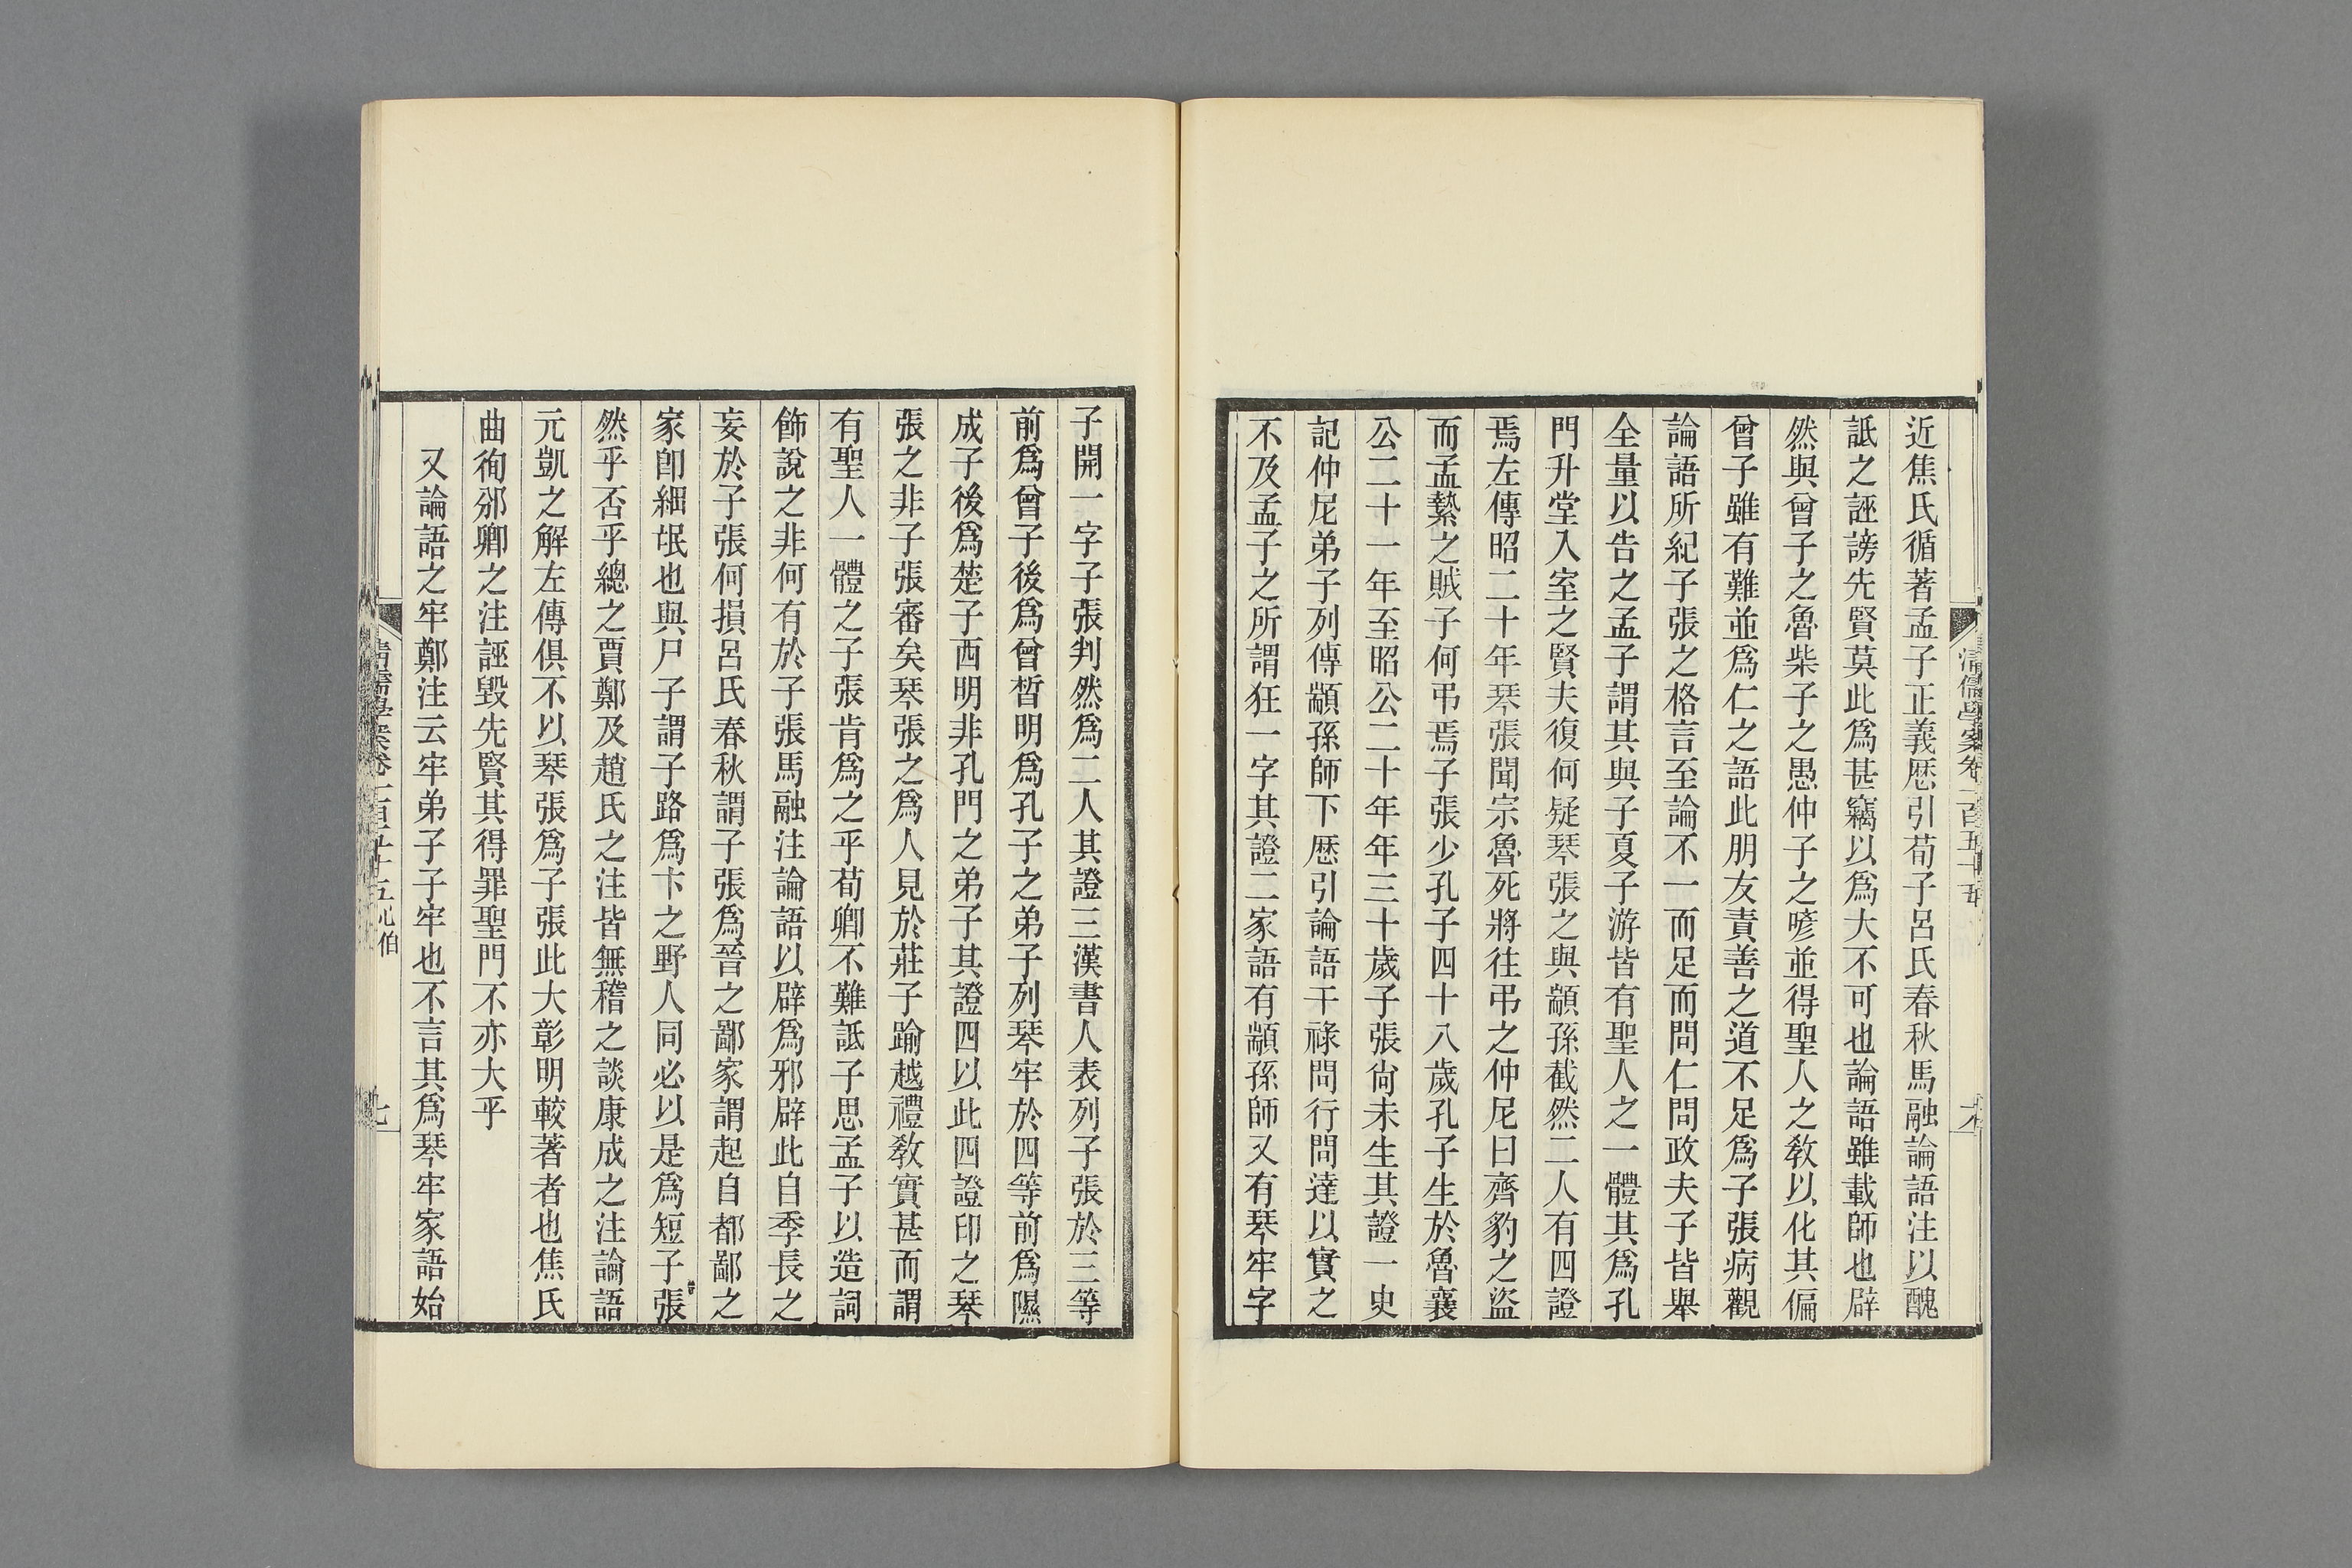 近焦氏循著孟子正義厯引荀子呂氏春秋馬融論語注以醜
詆之誣謗先賢莫此爲甚竊以爲大不可也論語雖載師也辟
然與曾子之魯柴子之愚仲子之喭並得聖人之敎以化其偏
曾子雖有難並爲仁之語此朋友責善之道不足爲子張病觀
論語所紀子張之格言至論不一而足而問仁問政夫子皆舉
全量以告之孟子謂其與子夏子游皆有聖人之一體其爲孔
門升堂入室之賢夫復何疑琴張之與顓孫截然二人有四證
焉左傳昭二十年琴張聞宗魯死將往弔之仲尼曰齊豹之盜
而孟縶之賊子何弔焉子張少孔子四十八歲孔子生於魯襄
公二十一年至昭公二十年年三十歲子張尙未生其證一史
記仲尼弟子列傳顓孫師下厯引論語干祿問行問達以實之
不及孟子之所謂狂一字其證二家語有顓孫師又有琴牢字
子開一字子張判然爲二人其證三漢書人表列子張於三等
前爲曾子後爲曾皙明爲孔子之弟子列琴牢於四等前爲隰
成子後爲楚子西明非孔門之弟子其證四以此四證印之琴
張之非子張審矣琴張之爲人見於莊子踰越禮敎實甚而謂
有聖人一體之子張肯爲之乎荀卿不難詆子思孟子以造詞
飾說之非何有於子張馬融注論語以辟爲邪辟此自季長之
妄於子張何損呂氏春秋謂子張爲晉之鄙家謂起自都鄙之
家卽細氓也與尸子謂子路爲卞之野人同必以是爲短子張
然乎否乎總之賈鄭及趙氏之注皆無稽之談康成之注論語
元凱之解左傳俱不以琴張爲子張此大彰明較著者也焦氏
曲徇邠卿之注誣毀先賢其得罪聖門不亦大乎
又論語之牢鄭注云牢弟子子牢也不言其爲琴牢家語始
清儒學案卷一百五十五心伯
七